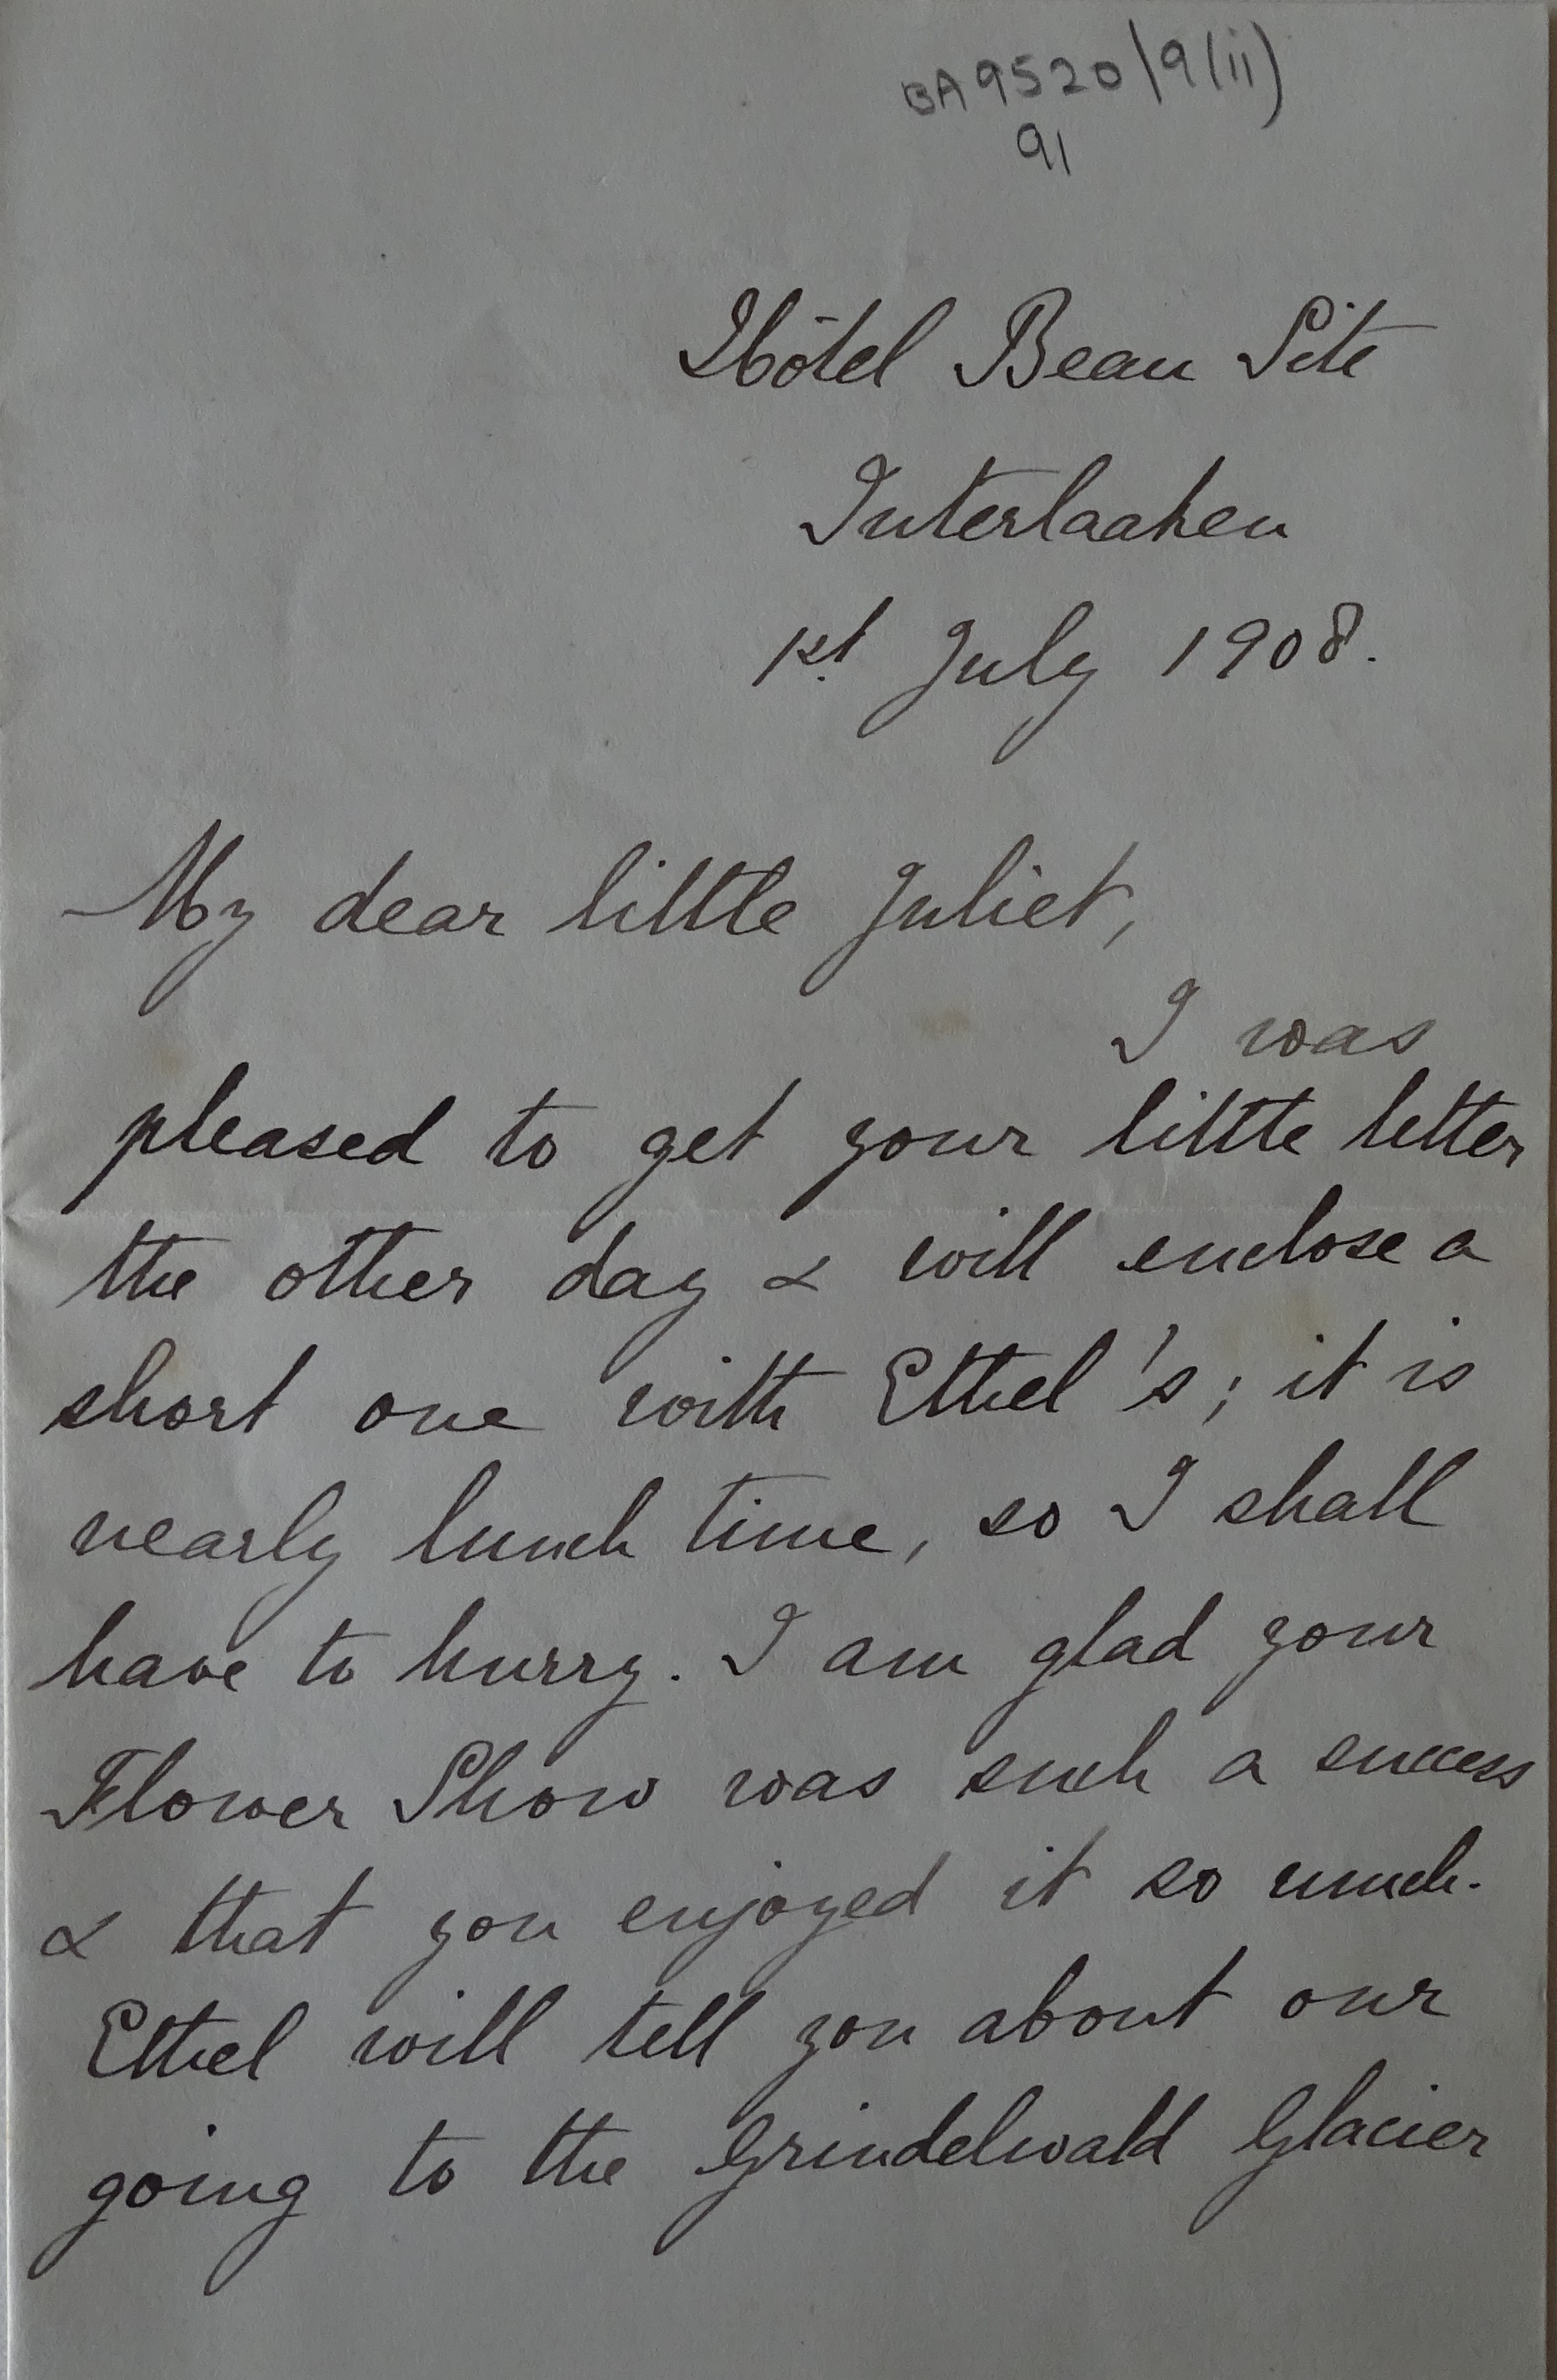 BA9520/9(ii)
91
Hôtel Beau Site
Interlaaken
1st July 1908.
My dear little Juliet,
I was
pleased to get your little letter
the other day & will enclose a
short one with Ethel's; it is
nearly lunch time, so I shall
have to hurry. I am glad your
Flower Show was such a success
& that you enjoyed it so much.
Ethel will tell you about our
going to the Grindelwald Glacier